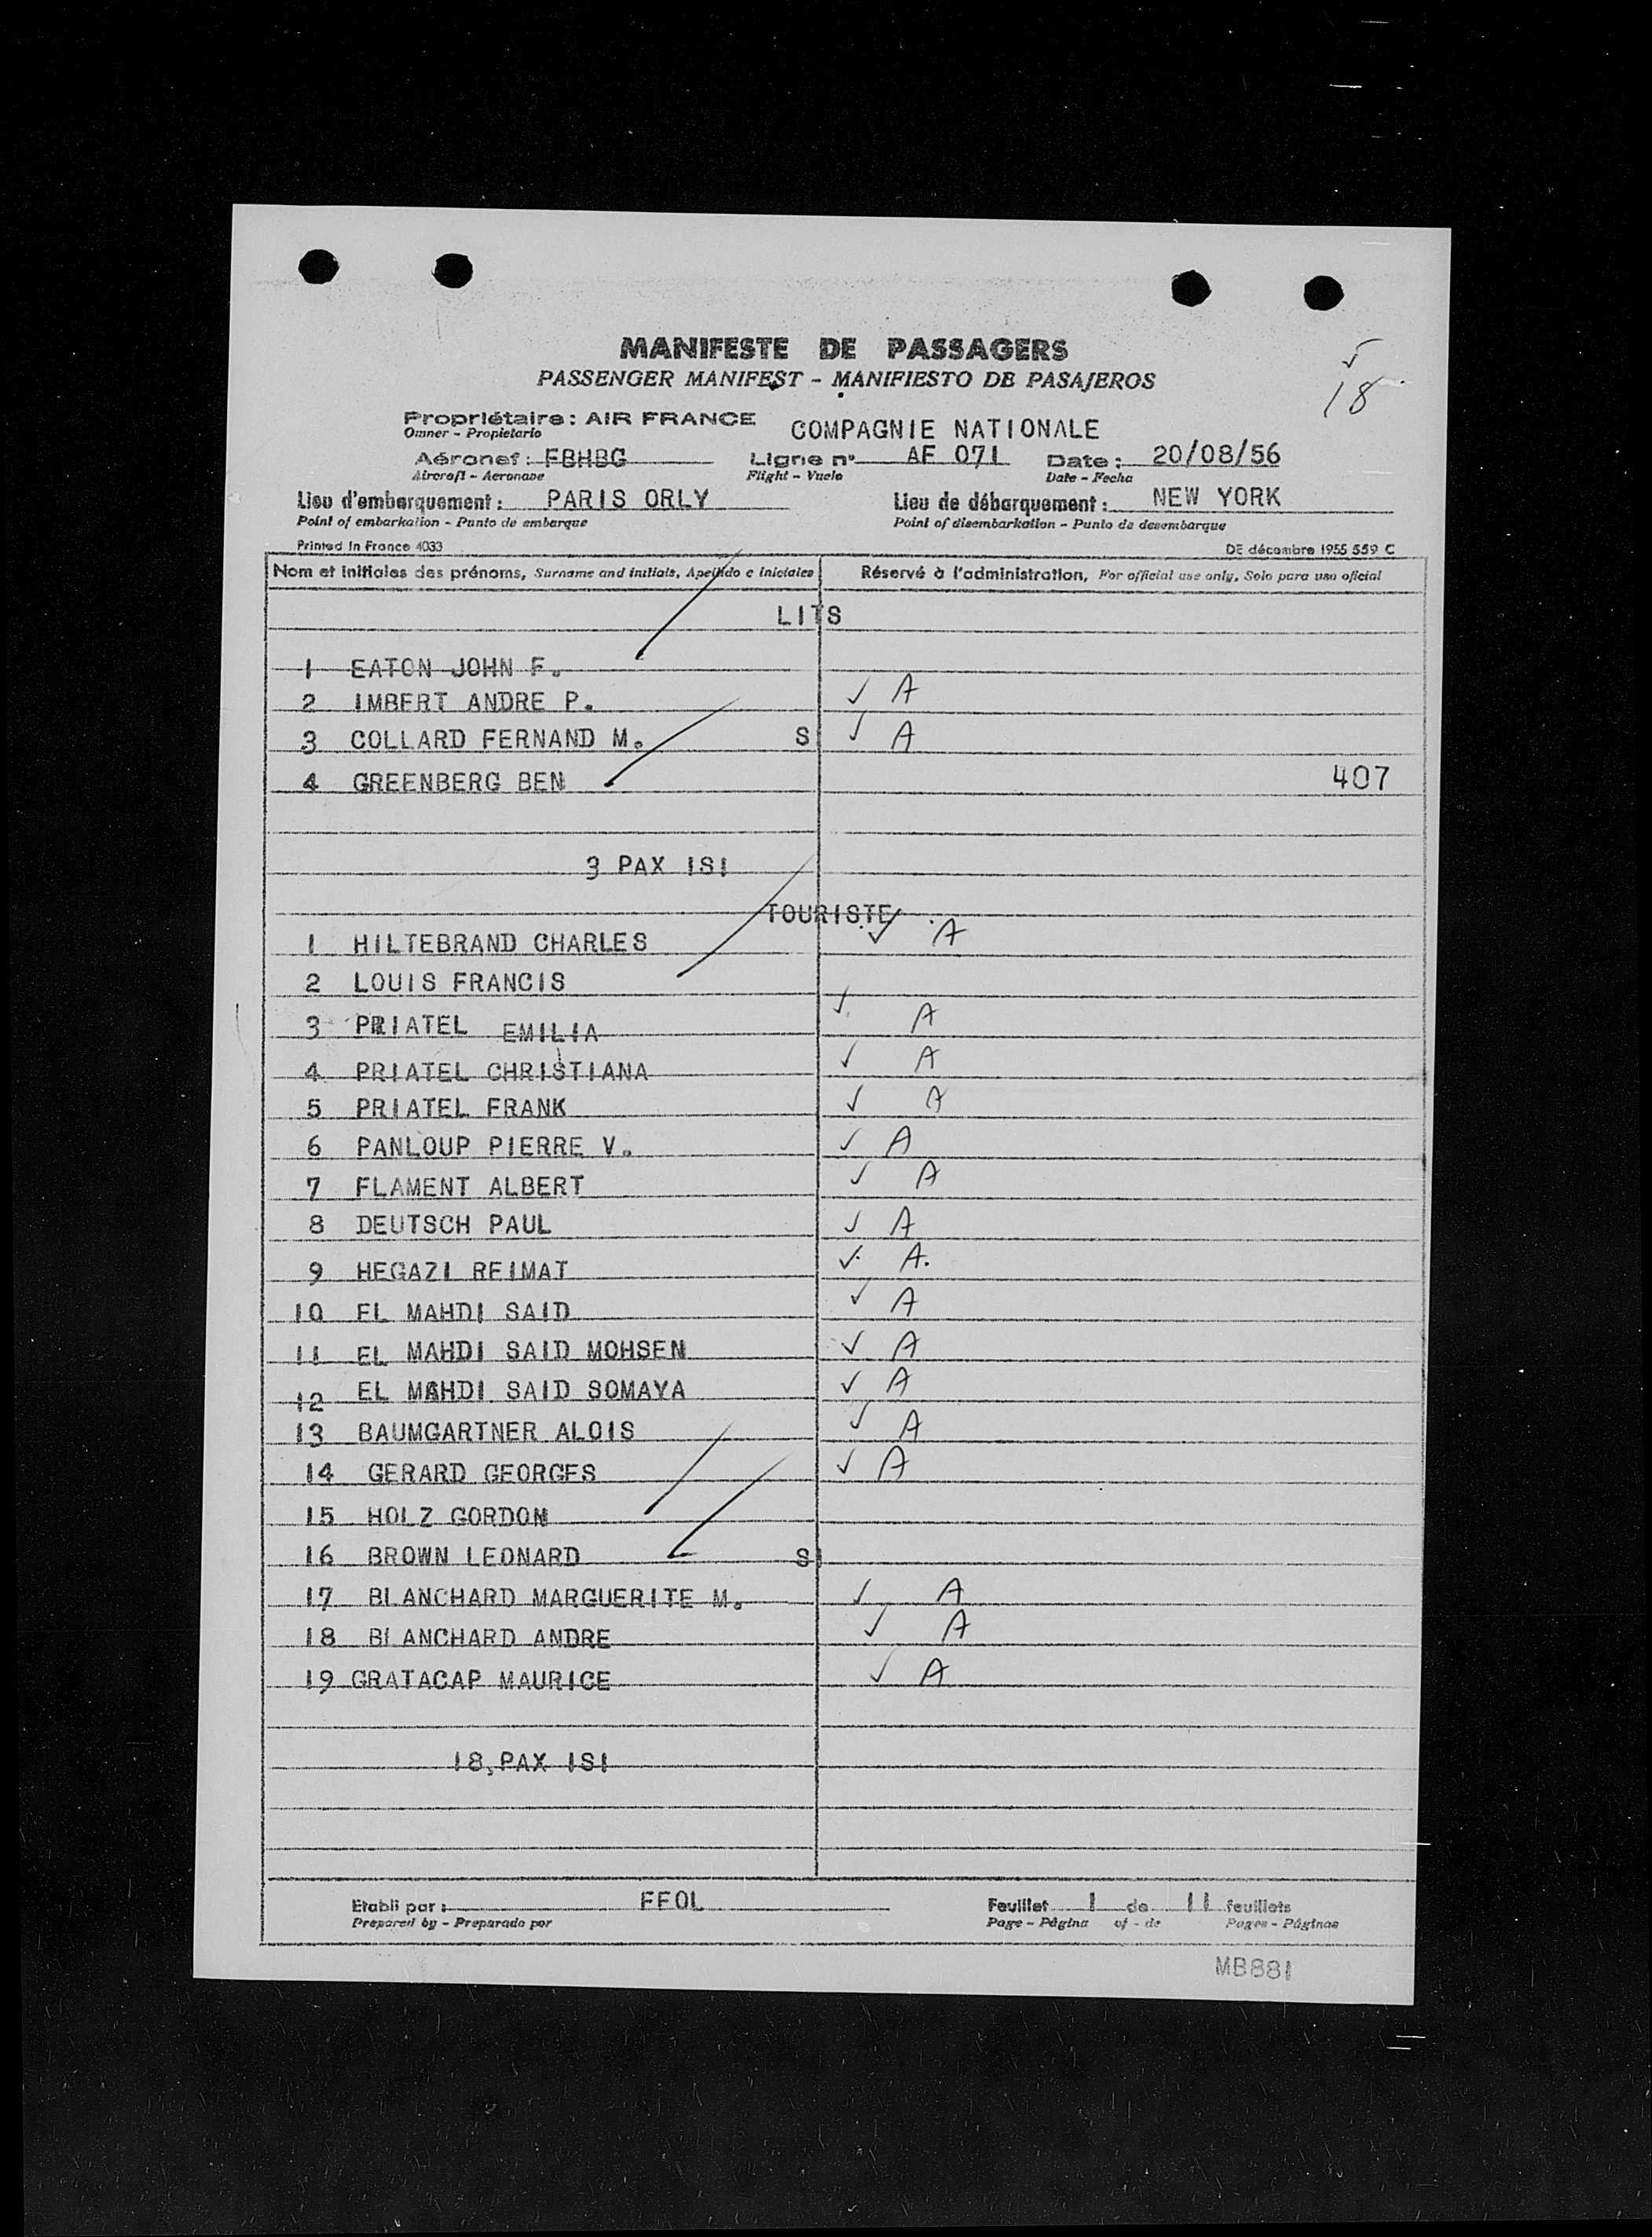 MANIFESTE DE PASSAGERS
PASSENGER MANIFEST - MANIFIESTO DE PASAJEROS
18
Propriétaire : AIR FRANCE COMPAGNIE NATIONALE
Owner - Propietario
Aéronef : FBHBG Ligne n° AF 071 Date : 20/08/56
Aircraft - Aeronave Flight - Vuelo Date - Fecha
Lieu d'embarquement : PARIS ORLY Lieu de débarquement : NEW YORK
Point of embarkation - Punto de embarque Point of disembarkation - Punto de desembarque
Printed in France 4033 DE décembre 1955 559 C
Nom et initiales des prénoms, Surname and initials, Apellido e iniciales Réservé à l'administration, For official use only, Solo para uso oficial
LITS
1 EATON JOHN F.
2 IMBERT ANDRE P. ✓ A
3 COLLARD FERNAND M. S ✓ A
4 GREENBERG BEN 407
3 PAX ISI
TOURISTE
1 HILTEBRAND CHARLES ✓ A
2 LOUIS FRANCIS
3 PRIATEL EMILIA ✓ A
4 PRIATEL CHRISTIANA ✓ A
5 PRIATEL FRANK ✓ A
6 PANLOUP PIERRE V. ✓ A
7 FLAMENT ALBERT ✓ A
8 DEUTSCH PAUL ✓ A
9 HEGAZI REIMAT ✓ A.
10 EL MAHDI SAID ✓ A
11 EL MAHDI SAID MOHSEN ✓ A
12 EL MAHDI SAID SOMAYA ✓ A
13 BAUMGARTNER ALOIS ✓ A
14 GERARD GEORGES ✓ A
15 HOLZ GORDON
16 BROWN LEONARD S
17 BLANCHARD MARGUERITE M. ✓ A
18 BLANCHARD ANDRE ✓ A
19 GRATACAP MAURICE ✓ A
18, PAX ISI
Etabli par : FFOL Feuillet 1 de 11 feuillets
Prepared by - Preparado por Page - Página of - de Pages - Páginas
MB881